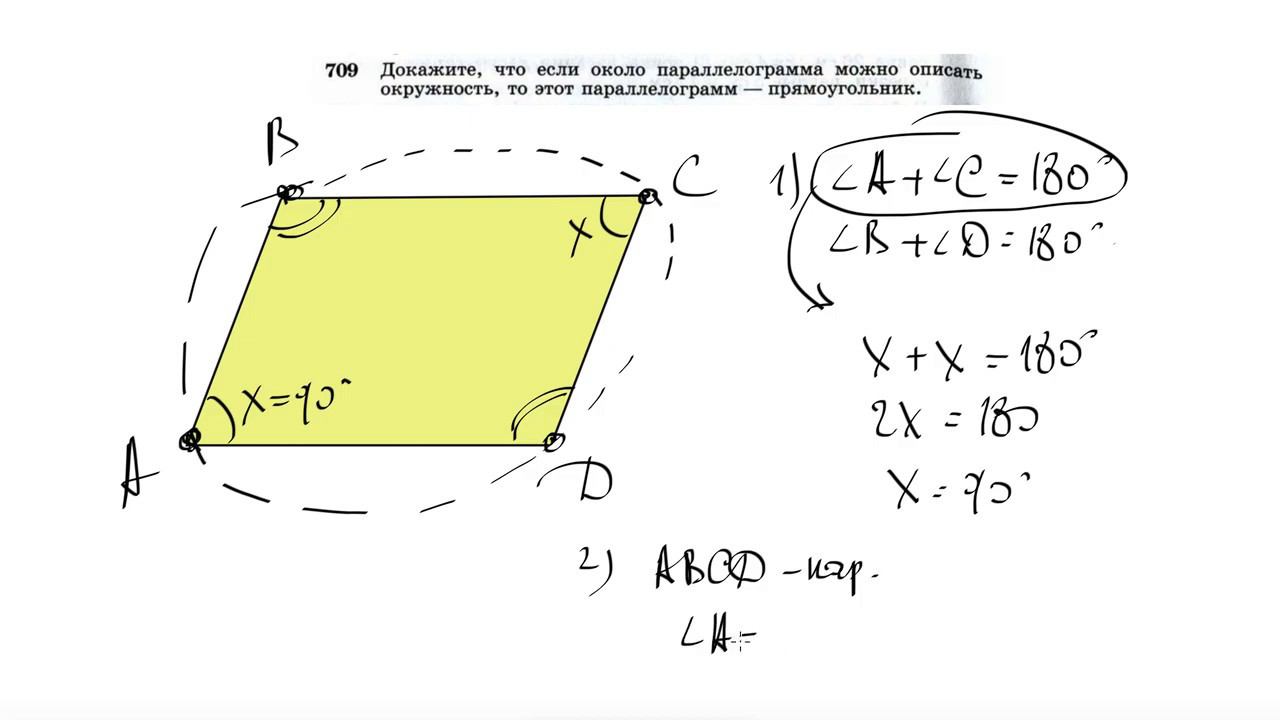 709 Докажите, что если около параллелограмма можно описать
окружность, то этот параллелограмм — прямоугольник.
B
C
1) ∠A + ∠C = 180°
x
∠B + ∠D = 180°
x + x = 180°
x = 90°
2x = 180
A
D
x = 90°
2) ABCD – пар.
∠A =